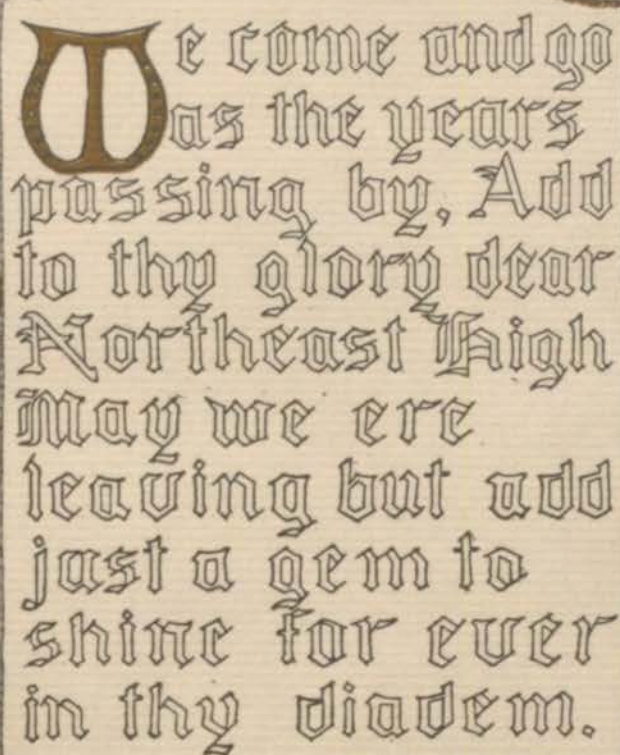 We come and go
as the years
passing by, Add
to thy glory dear
Northeast High
May we ere
leaving but add
just a gem to
shine for ever
in thy diadem.